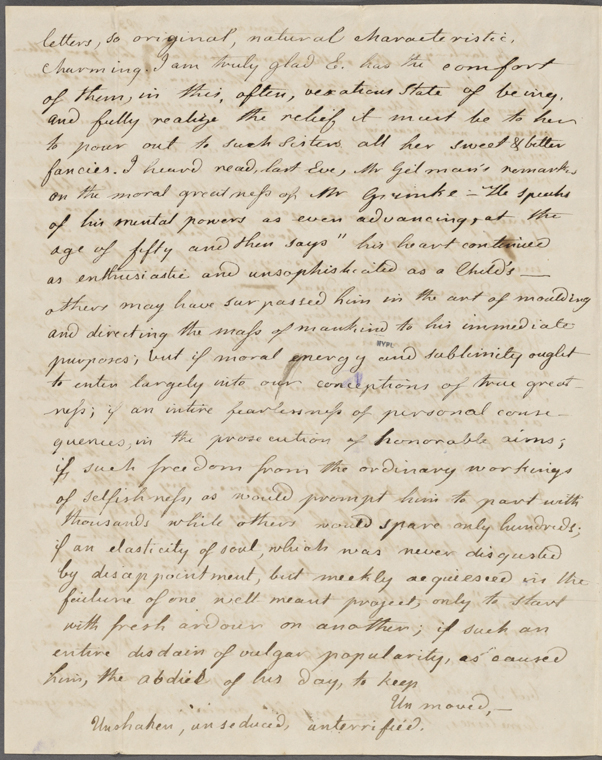 letters, so original, natural characteristic,
charming. I am truly glad E. has the comfort
of them, in this, often, vexatious state of being,
and fully realize the relief it must be to her
to pour out to such Sisters all her sweet & bitter
fancies. I heard read, last Eve, Mr Gilman's remarks
on the moral greatness of Mr Grimke - "He speaks
of his mental powers as even advancing, at the
age of fifty and then says" his heart continued
as enthusiastic and unsophisticated as a Child's —
others may have surpassed him in the art of moulding
and directing the mass of mankind to his immediate
NYPL
purposes; but if moral energy and sublimity ought
to enter largely into our conceptions of true great-
ness; if an intire fearlessness of personal conse-
quences, in the prosecution of honorable aims;
if such freedom from the ordinary workings
of selfishness, as would prompt him to part with
thousands while others would spare only hundreds;
if an elasticity of soul, which was never disgusted
by disappointment, but meekly acquiesced in the
failure of one well meant project, only to start
with fresh ardour on another; if such an
entire disdain of vulgar popularity, as caused
him, the abdiel of his day, to keep
Unmoved, —
Unshaken, unseduced, unterrified.